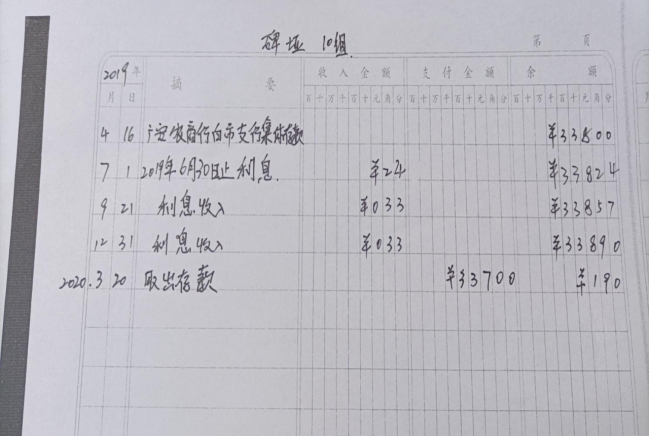 碑垭 10组
第 页
2019年 摘 要 收入金额 支付金额 余 额
月 日 百十万千百十元角分 百十万千百十元角分 百十万千百十元角分
4 16 广安农商行白市支行集体存款 ¥33800
7 1 2019年6月30日止利息 ¥24 ¥33824
9 21 利息收入 ¥033 ¥33857
12 31 利息收入 ¥033 ¥33890
2020.3 20 取出存款 ¥33700 ¥190